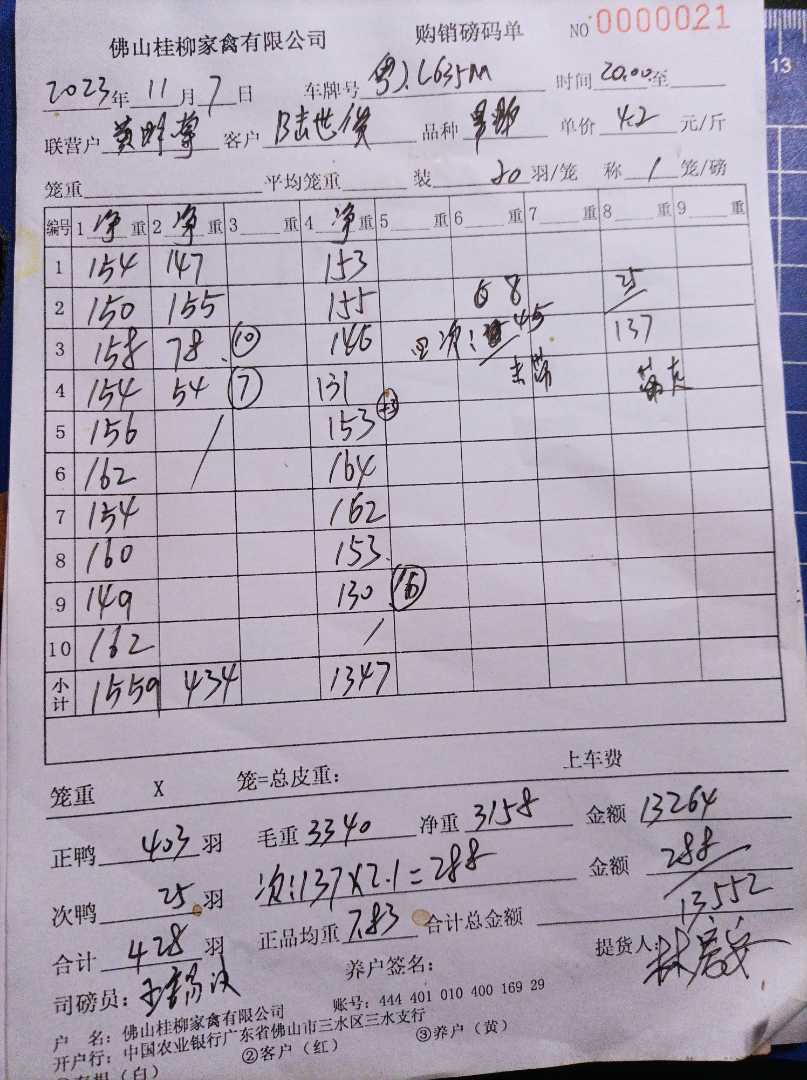 佛山桂柳家禽有限公司 购销磅码单 NO 0000021
2023年 11月 7日 车牌号 粤J.L635M 时间 20.00至
联营户 客户 品种 单价 4.2 元/斤
笼重 平均笼重 装 20 羽/笼 称 1 笼/磅
编号 1 净 重 2 净 重 3 重 4 净 重 5 重 6 重 7 重 8 重 9 重
1 154 147 153
2 150 155 155 68 25
3 158 78 10 146 次: 45 137
4 154 54 7 131
5 156 / 153
6 162 164
7 154 162
8 160 153
9 149 130 16
10 162 /
小计 1559 434 1347
笼重 X 笼=总皮重: 上车费
正鸭 403 羽 毛重 3340 净重 3158 金额 13264
次鸭 25 羽 次:137X2.1=288 金额 288
合计 428 羽 正品均重 7.83 合计总金额 13552
司磅员: 养户签名: 提货人:
户 名: 佛山桂柳家禽有限公司 账号: 444 401 010 400 169 29
开户行: 中国农业银行广东省佛山市三水区三水支行
(白) ②客户(红) ③养户(黄)